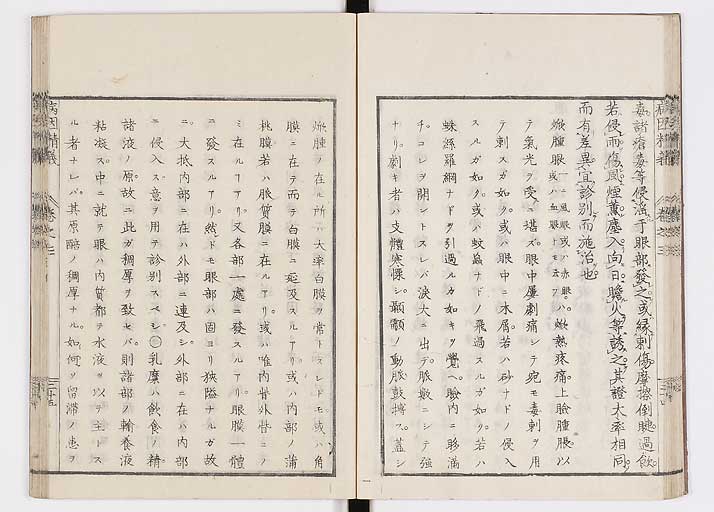 毒諸瘡毒等侵淫于眼部發之或縁刺傷摩擦倒睫過飲
若侵雨傷風煙薫塵入向日瞻火等誘之其證大率相同
而有差異宜診別而施治也
焮腫眼 一ニ風眼或ハ赤眼 或ハ血眼トモ云フ ハ焮熱疼痛上瞼腫脹以
テ氣光ヲ受ニ堪ズ眼中屢劇痛シテ宛モ毒刺ヲ用
テ刺スガ如ク或ハ眼中ニ木屑若ハ砂ナドノ侵入
スルガ如ク或ハ蚊蝱ナドノ飛過スルガ如ク若ハ
蛛絲羅網ナドヲ引過ルカ如キヲ覺ヘ瞼内ニ眵滿
チコレヲ開ントスレバ淚大ニ出デ脈數ニシテ強
ナリ劇キ者ハ支體寒慄シ顳顬ノ動脈鼓搏ス蓋シ
焮腫ノ在ル所ハ大率白膜ヲ常トスレドモ或ハ角
膜ニ在テ而テ白膜ニ延及スルアリ或ハ内部ノ蒲
桃膜若ハ脈質膜ニ在ルアリ或ハ唯内眥外眥ニノ
ミ在ルヿアリ又各部一處ニ發スルアリ眼膜一體
ニ發スルアリ然ドモ眼部ハ固ヨリ狹隘ナルガ故
ニ大抵内部ニ在ハ外部ニ連及シ外部ニ在ハ内部
ニ侵入ス意ヲ用テ診別スベシ○乳糜ハ飲食ノ精
諸液ノ原故ニ此ガ稠厚ヲ致セバ則諸部ノ輸養液
粘凝ス中ニ就テ眼ハ内質都テ水液ヲ以ヲ主トス
ル者ナレバ其原醅ノ稠厚ナル如何ゾ留滞ノ患ヲ